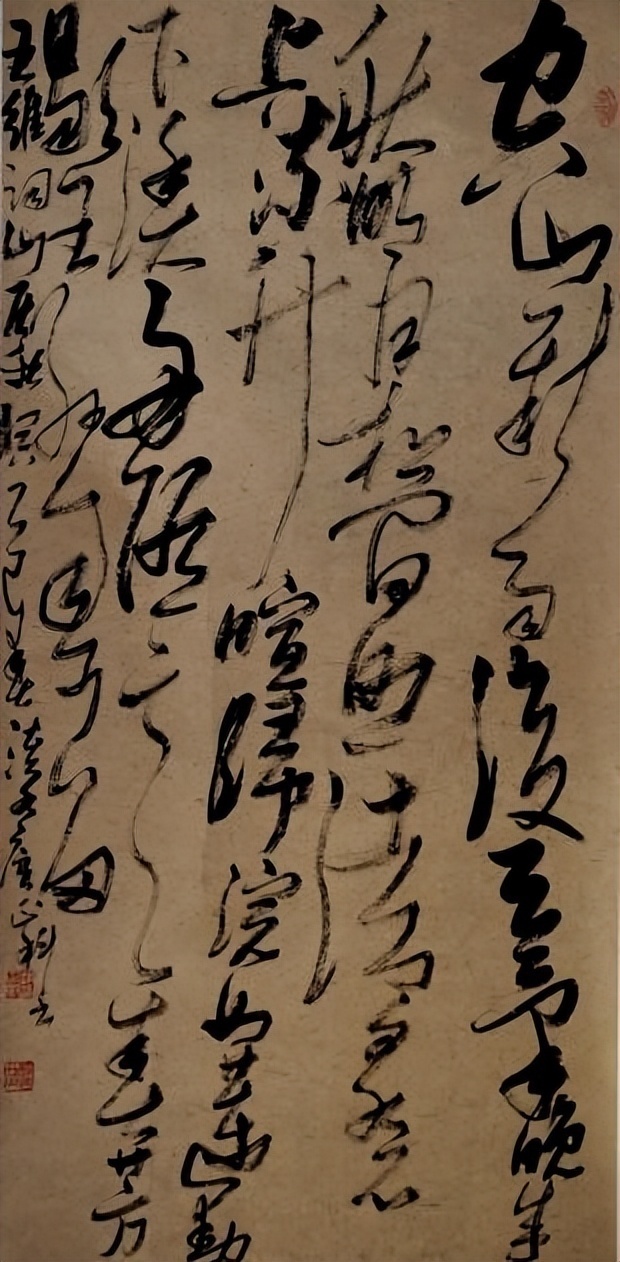 空山新雨後天氣晚來
秋明月松間照清泉石
上流竹喧歸浣女蓮動
下漁舟隨意春芳
歇王孫自可留
王維詞山居秋暝乙巳春